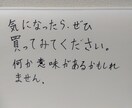 気になったら、ぜひ
買ってみてください。
何か意味があるかもしれ
ません。